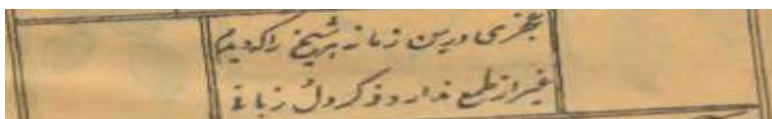 عجزی درین زمانه بهر شیخ را که دیدم
غیر از طمع ندارد ذکر دل زبانی